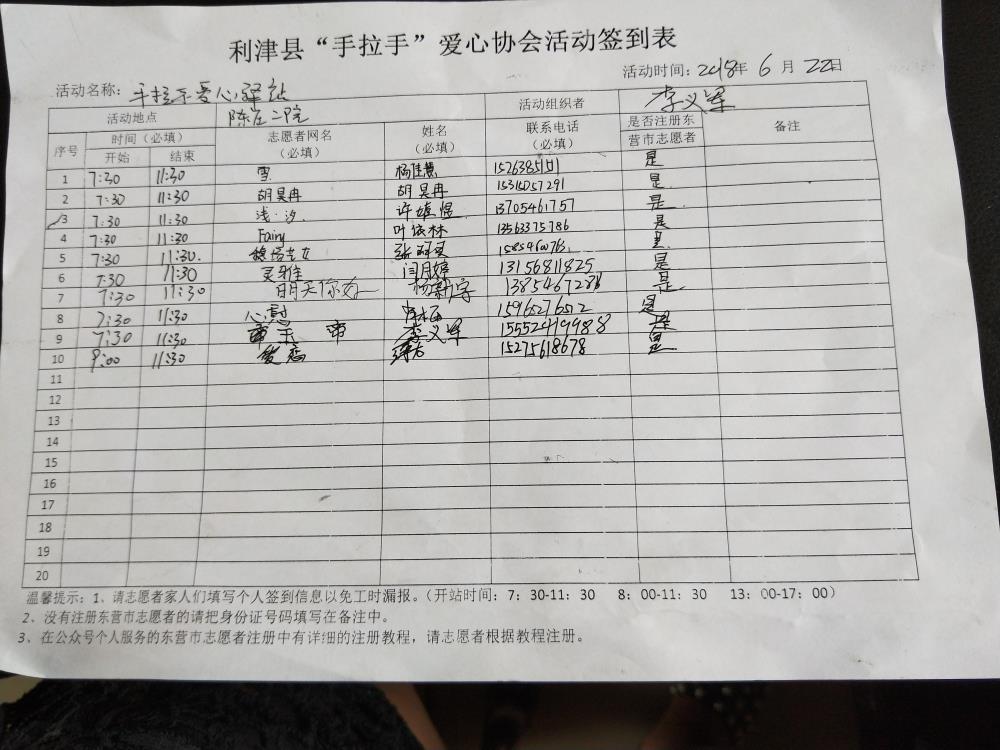 利津县“手拉手”爱心协会活动签到表
活动时间：2018年 6 月 22日
活动名称： 手拉手爱心驿站
活动地点 陈庄二院 活动组织者 李义军
序号 时间（必填） 志愿者网名（必填） 姓名（必填） 联系电话（必填） 是否注册东营市志愿者 备注
开始 结束
1 7:30 11:30 雪 杨佳慧 是
2 7:30 11:30 胡昊冉 胡昊冉 15315057291 是
3 7:30 11:30 浅·汐 许 煜 13705461757 是
4 7:30 11:30 Fairy 叶依林 13563375786 是
5 7:30 11:30. 是
6 7:30 11:30 灵雅 闫月婷 13156811825 是
7 7:30 11:30 明天你好 杨新宇 是
8 7:30 11:30 心慰 15965276512 是
9 7:30 11:30 李义军 15552419988 是
10 9:00 11:30 15275618678 是
11
12
13
14
15
16
17
18
19
20
温馨提示：1、请志愿者家人们填写个人签到信息以免工时漏报。（开站时间：7：30-11：30 8：00-11：30 13：00-17：00）
2、没有注册东营市志愿者的请把身份证号码填写在备注中。
3、在公众号个人服务的东营市志愿者注册中有详细的注册教程，请志愿者根据教程注册。